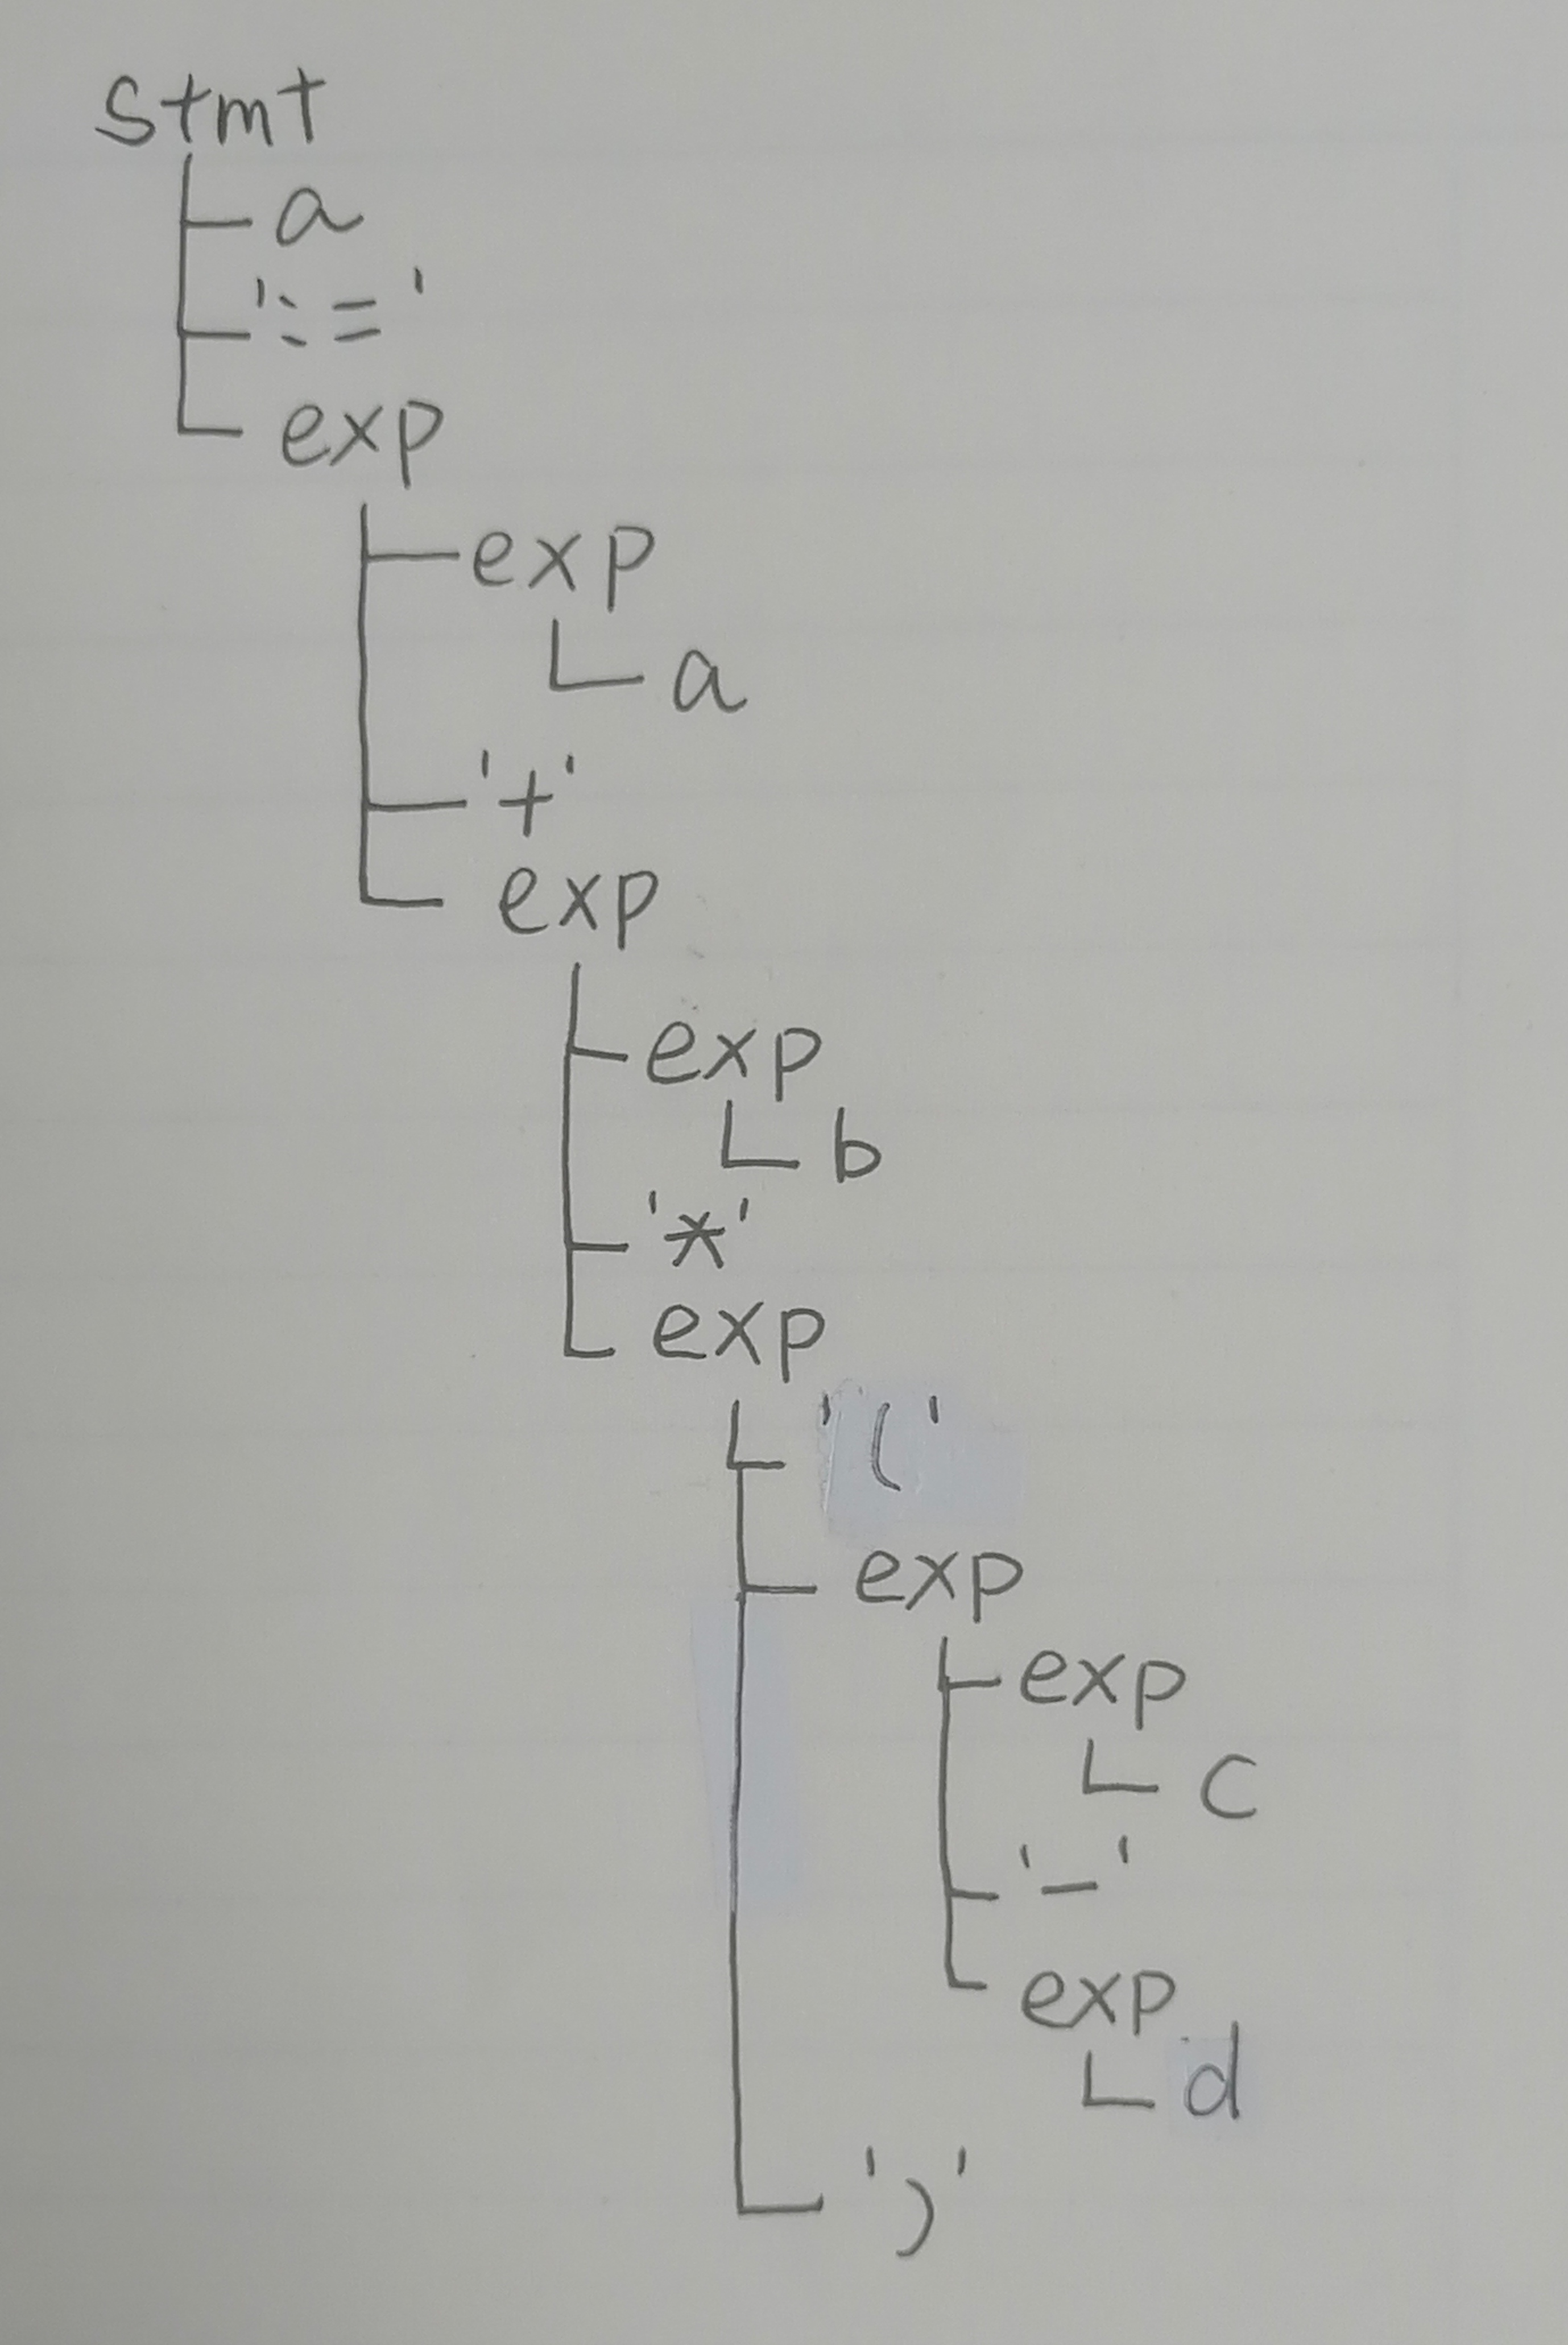 stmt
a
':='
exp
exp
a
'+'
exp
exp
b
'*'
exp
'('
exp
exp
c
'-'
exp
d
')'